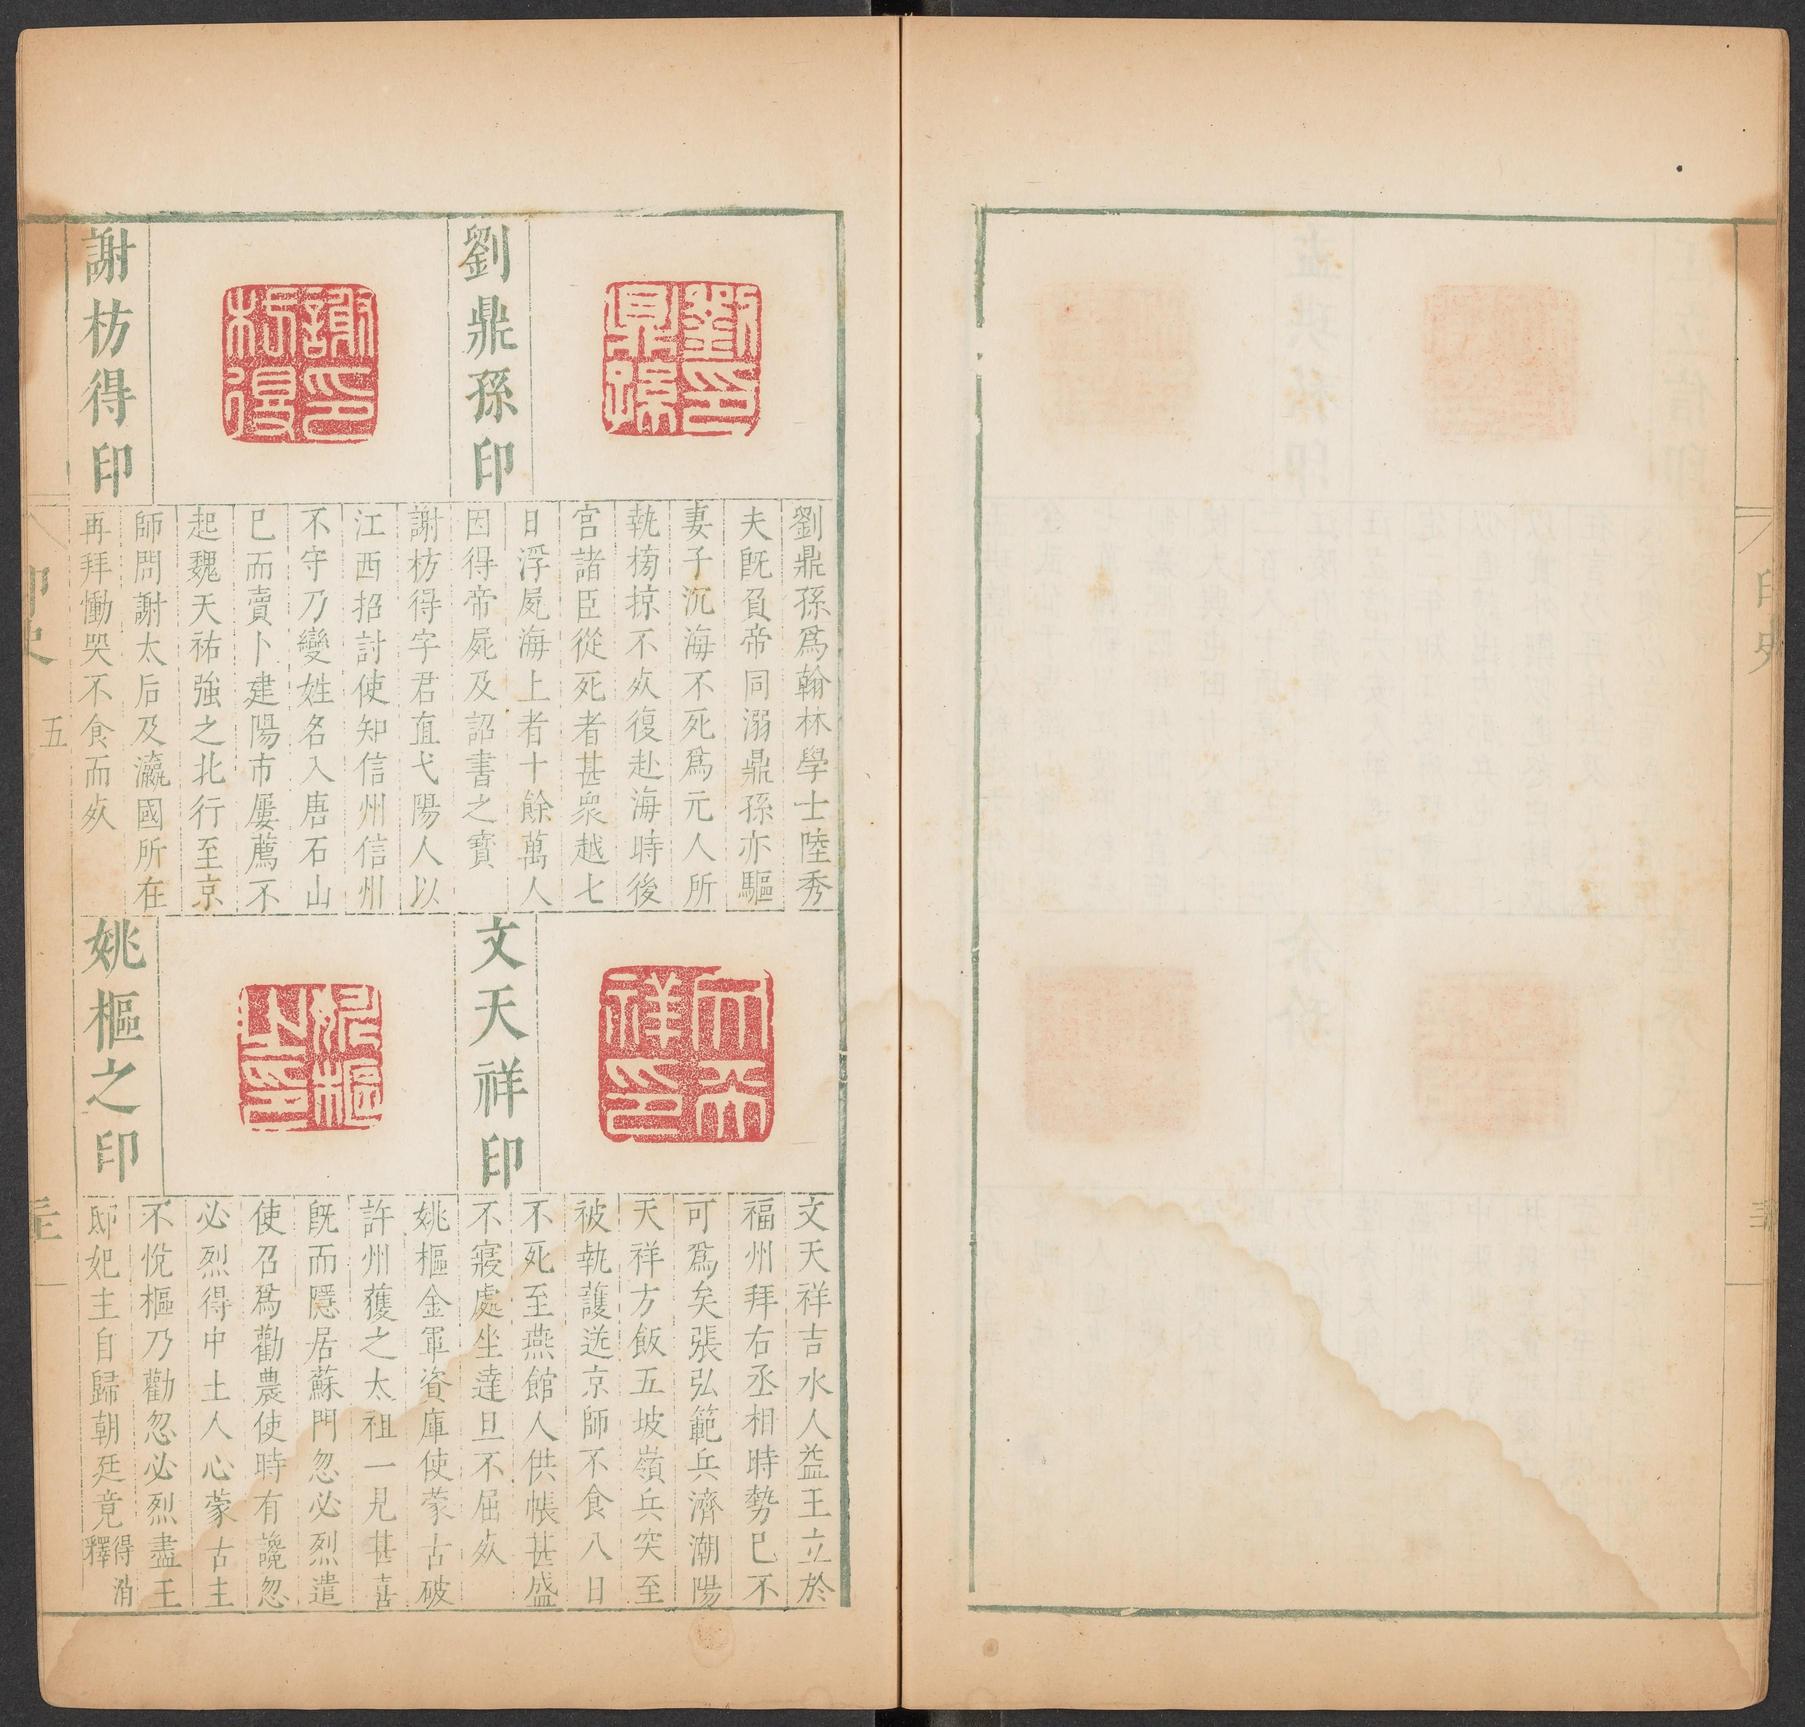 劉印鼎孫
劉鼎孫印
謝印枋得
謝枋得印
劉鼎孫爲翰林學士陸秀
夫旣負帝同溺鼎孫亦驅
妻子沉海不死爲元人所
執搒掠不死復赴海時後
宮諸臣從死者甚衆越七
日浮屍海上者十餘萬人
因得帝屍及詔書之寶
謝枋得字君直弋陽人以
江西招討使知信州信州
不守乃變姓名入唐石山
已而賣卜建陽市屢薦不
起魏天祐強之北行至京
師問謝太后及瀛國所在
再拜慟哭不食而死
文天祥印
文天祥印
姚樞之印
姚樞之印
文天祥吉水人益王立於
福州拜右丞相時勢已不
可爲矣張弘範兵濟潮陽
天祥方飯五坡嶺兵突至
被執護送京師不食八日
不死至燕館人供帳甚盛
不寢處坐達旦不屈死
姚樞金軍資庫使蒙古破
許州獲之太祖一見甚喜
旣而隱居蘇門忽必烈遣
使召爲勸農使時有讒忽
必烈得中土人心蒙古主
不悅樞乃勸忽必烈盡王
邸妃主自歸朝廷竟得消釋
印史
五